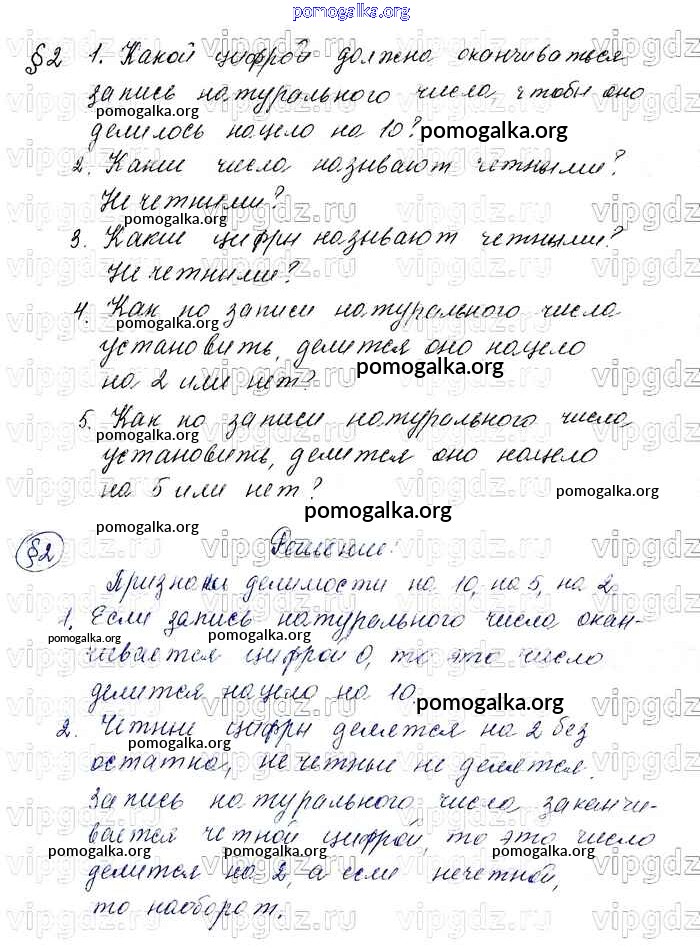 pomogalka.org
§2 1. Какой цифрой должна оканчиваться
запись натурального числа, чтобы оно
делилось нацело на 10? pomogalka.org
2. Какие числа называют четными?
Нечетными?
pomogalka.org
3. Какие цифры называют четными?
Нечетными? pomogalka.org
4. Как по записи натурального числа
pomogalka.org
установить, делится оно нацело
на 2 или нет? pomogalka.org
5. Как по записи натурального числа
pomogalka.org
установить, делится оно нацело
на 5 или нет? pomogalka.org
pomogalka.org pomogalka.org
§2 Решение:
Признаки делимости на 10, на 5, на 2.
1. Если запись натурального числа окан-
pomogalka.org pomogalka.org
чивается цифрой 0, то это число
делится нацело на 10.
pomogalka.org
2. Четные цифры делятся на 2 без
pomogalka.org
остатка, нечетные не делятся.
Запись натурального числа заканчи-
вается четной цифрой, то это число
pomogalka.org pomogalka.org pomogalka.org
делится на 2, а если нечетной,
то наоборот.